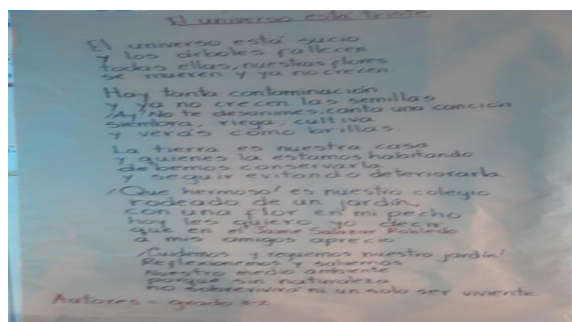 El universo está triste
El universo está sucio
y los árboles fallecen
todas ellas, nuestras flores
se mueren y ya no crecen
Hay tanta contaminación
y ya no crecen las semillas
¡Ay! No te desanimes, canta una canción
siembra, riega, cultiva
y verás como brillas.
La tierra es nuestra casa
y quienes la estamos habitando
debemos conservarla
y seguir evitando deteriorarla
¡Que hermoso! es nuestro colegio
rodeado de un jardín
con una flor en mi pecho
hoy les quiero yo decir
que en el Jaime Salazar Robledo
a mis amigos aprecio:
¡Cuidemos y reguemos nuestro jardín!
Reflexionemos y salvemos
nuestro medio ambiente
porque sin naturaleza
no sobrevivirá ni un solo ser viviente
Autores = grado